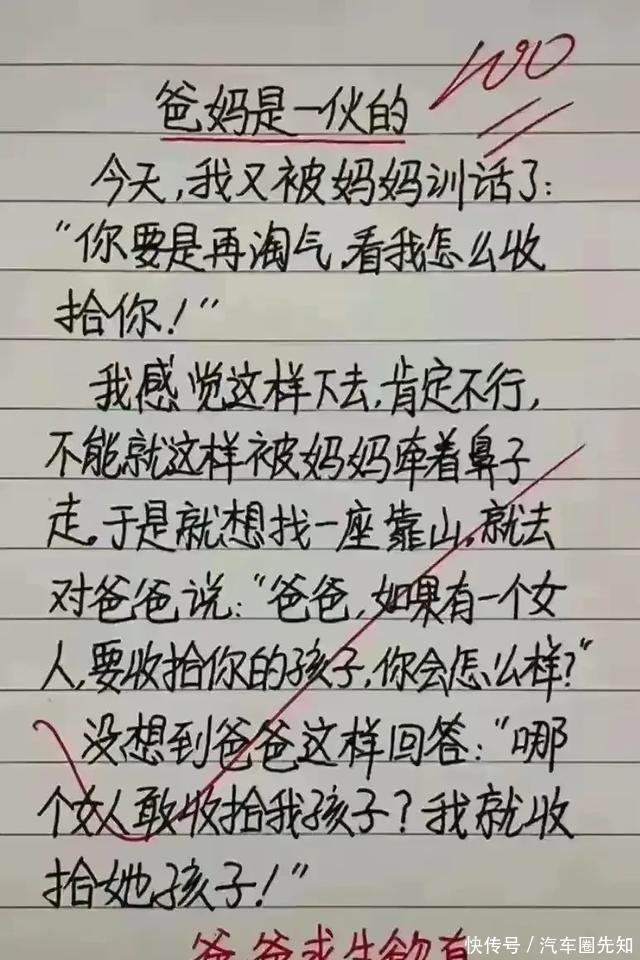 爸妈是一伙的
100
今天,我又被妈妈训话了:
“你要是再淘气,看我怎么收
拾你!”
我感觉这样下去,肯定不行,
不能就这样被妈妈牵着鼻子
走。于是就想找一座靠山,就去
对爸爸说:“爸爸,如果有一个女
人,要收拾你的孩子,你会怎么样?”
没想到爸爸这样回答:“哪
个女人敢收拾我孩子?我就收
拾她孩子!”
爸爸求生欲有
快传号/汽车圈先知